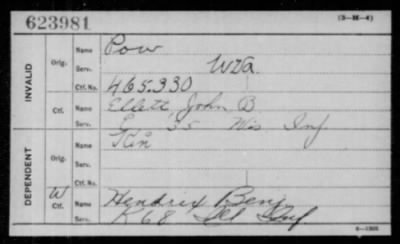 623981 (3-M-4)
INVALID
Orig. Name Pow
Serv. Wva.
Ctf. No. 465.330
Ctf. Name Ellett, John B
Serv. 35 Wis Inf.
DEPENDENT
Orig. Name Kin
Serv.
Ctf. No.
W Ctf. Name Hendrix Benj
Serv. K 68 Inf